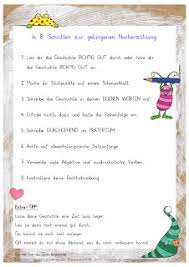 In 8 Schritten zur gelungenen Nacherzählung
1. Lies dir die Geschichte RICHTIG GUT durch oder höre dir
die Geschichte RICHTIG GUT an.
2. Mache dir Stichpunkte auf einem Schmierblatt.
3. Schreibe die Geschichte in deinen EIGENEN WORTEN auf.
4. Erfinde nichts dazu und halte die Reihenfolge ein.
5. Schreibe DURCHGEHEND im PRÄTERITUM.
6. Achte auf abwechslungsreiche Satzanfänge.
7. Verwende viele Adjektive und ausdrucksstarke Verben.
8. Kontrolliere deine Rechtschreibung.
Extra-TIPP:
Lasse deine Geschichte eine Zeit lang liegen.
Lies sie dann noch einmal gut durch.